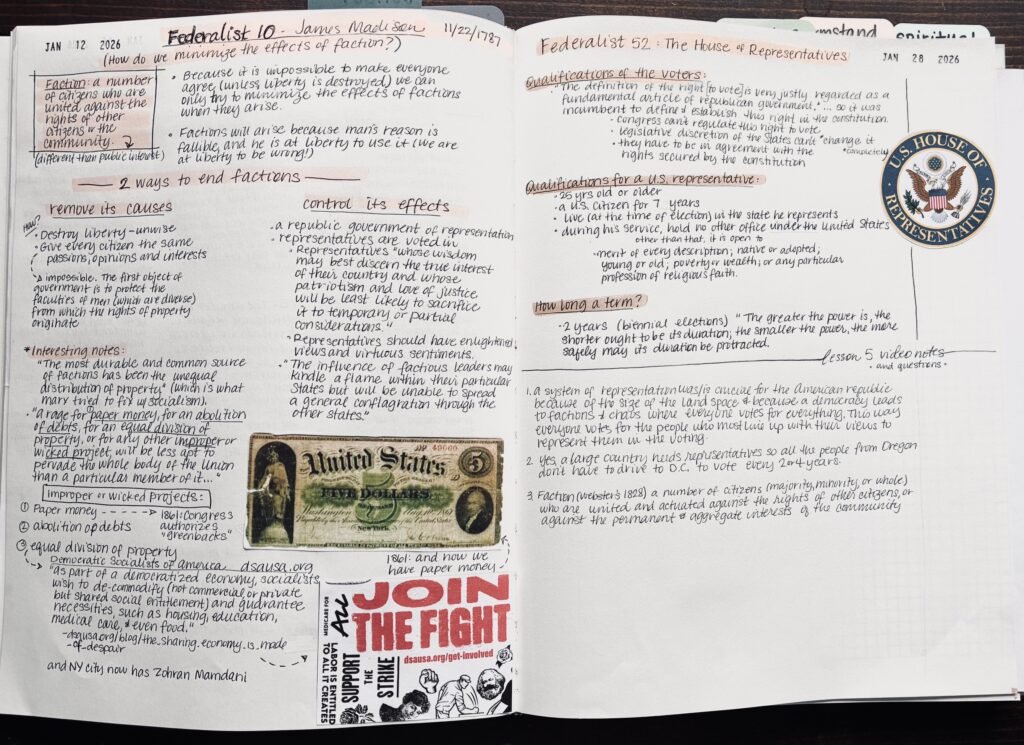 mstand
spiritual
JAN 12 2026
Federalist 10 - James Madison 11/22/1787
(How do we minimize the effects of faction?)
Faction: a number
of citizens who are
united against the
rights of other
citizens or the
community.
(different than public interest)
• Because it is impossible to make everyone
agree (unless liberty is destroyed) we can
only try to minimize the effects of factions
when they arise.
• Factions will arise because man's reason is
fallible, and he is at liberty to use it (we are
at liberty to be wrong!)
2 ways to end factions
remove its causes
How?
• Destroy liberty - unwise
• Give every citizen the same
passions, opinions and interests
impossible. The first object of
government is to protect the
faculties of men (which are diverse)
from which the rights of property
originate
*Interesting notes:
"The most durable and common source
of factions has been the unequal
distribution of property" (which is what
marx tried to fix w/ socialism).
• "a rage for paper money, for an abolition
of debts, for an equal division of
property, or for any other improper or
wicked project, will be less apt to
pervade the whole body of the Union
than a particular member of it..."
Improper or wicked projects:
① Paper money
1861: Congress
authorizes
"greenbacks"
② abolition of debts
③ equal division of property
Democratic Socialists of america dsausa.org
"as part of a democratized economy, socialists
wish to de-commodify (not commercial or private
but shared social entitlement) and guarantee
necessities, such as housing, education,
medical care, & even food."
-dsausa.org/blog/the_sharing_economy_is_made
-of-despair
and NY city now has Zohran Mamdani
control its effects
• a republic government of representation
• representatives are voted in
• Representatives "whose wisdom
may best discern the true interest
of their country and whose
patriotism and love of justice
will be least likely to sacrifice
it to temporary or partial
considerations."
• Representatives should have enlightened
views and virtuous sentiments.
• "The influence of factious leaders may
kindle a flame within their particular
States but will be unable to spread
a general conflagration through the
other states."
United States
5
FIVE DOLLARS
New York
1861: and now we
have paper money
JOIN
THE FIGHT
dsausa.org/get-involved
MEDICARE FOR ALL
LABOR IS ENTITLED
TO ALL IT CREATES
SUPPORT
THE
STRIKE
Federalist 52: The House of Representatives
JAN 28 2026
Qualifications of the voters:
• "The definition of the right [to vote] is very justly regarded as a
fundamental article of republican government." ... so it was
incumbent to define & establish this right in the constitution.
• congress can't regulate this right to vote
• legislative discretion of the states can't *change it
*completely
• they have to be in agreement with the
rights secured by the constitution
U.S. HOUSE OF
REPRESENTATIVES
Qualifications for a U.S. representative:
• 25 yrs old or older
• a U.S. Citizen for 7 years
• Live (at the time of election) in the state he represents
• during his service, hold no other office under the United States
other than that, it is open to
-merit of every description; native or adopted;
young or old; poverty or wealth; or any particular
profession of religious faith.
How long a term?
• 2 years (biennial elections) "The greater the power is, the
shorter ought to be its duration; the smaller the power, the more
safely may its duration be protracted.
lesson 5 video notes
• and questions •
1. a system of representation was/is crucial for the American republic
because of the size of the land space & because a democracy leads
to factions & chaos where everyone votes for everything. This way
everyone votes for the people who most line up with their views to
represent them in the voting.
2. Yes, a large country needs representatives so all the people from Oregon
don't have to drive to D.C. to vote every 2 or 4 years.
3. Faction (webster's 1828) a number of citizens (majority, minority, or whole)
who are united and actuated against the rights of other citizens, or
against the permanent & aggregate interests of the community